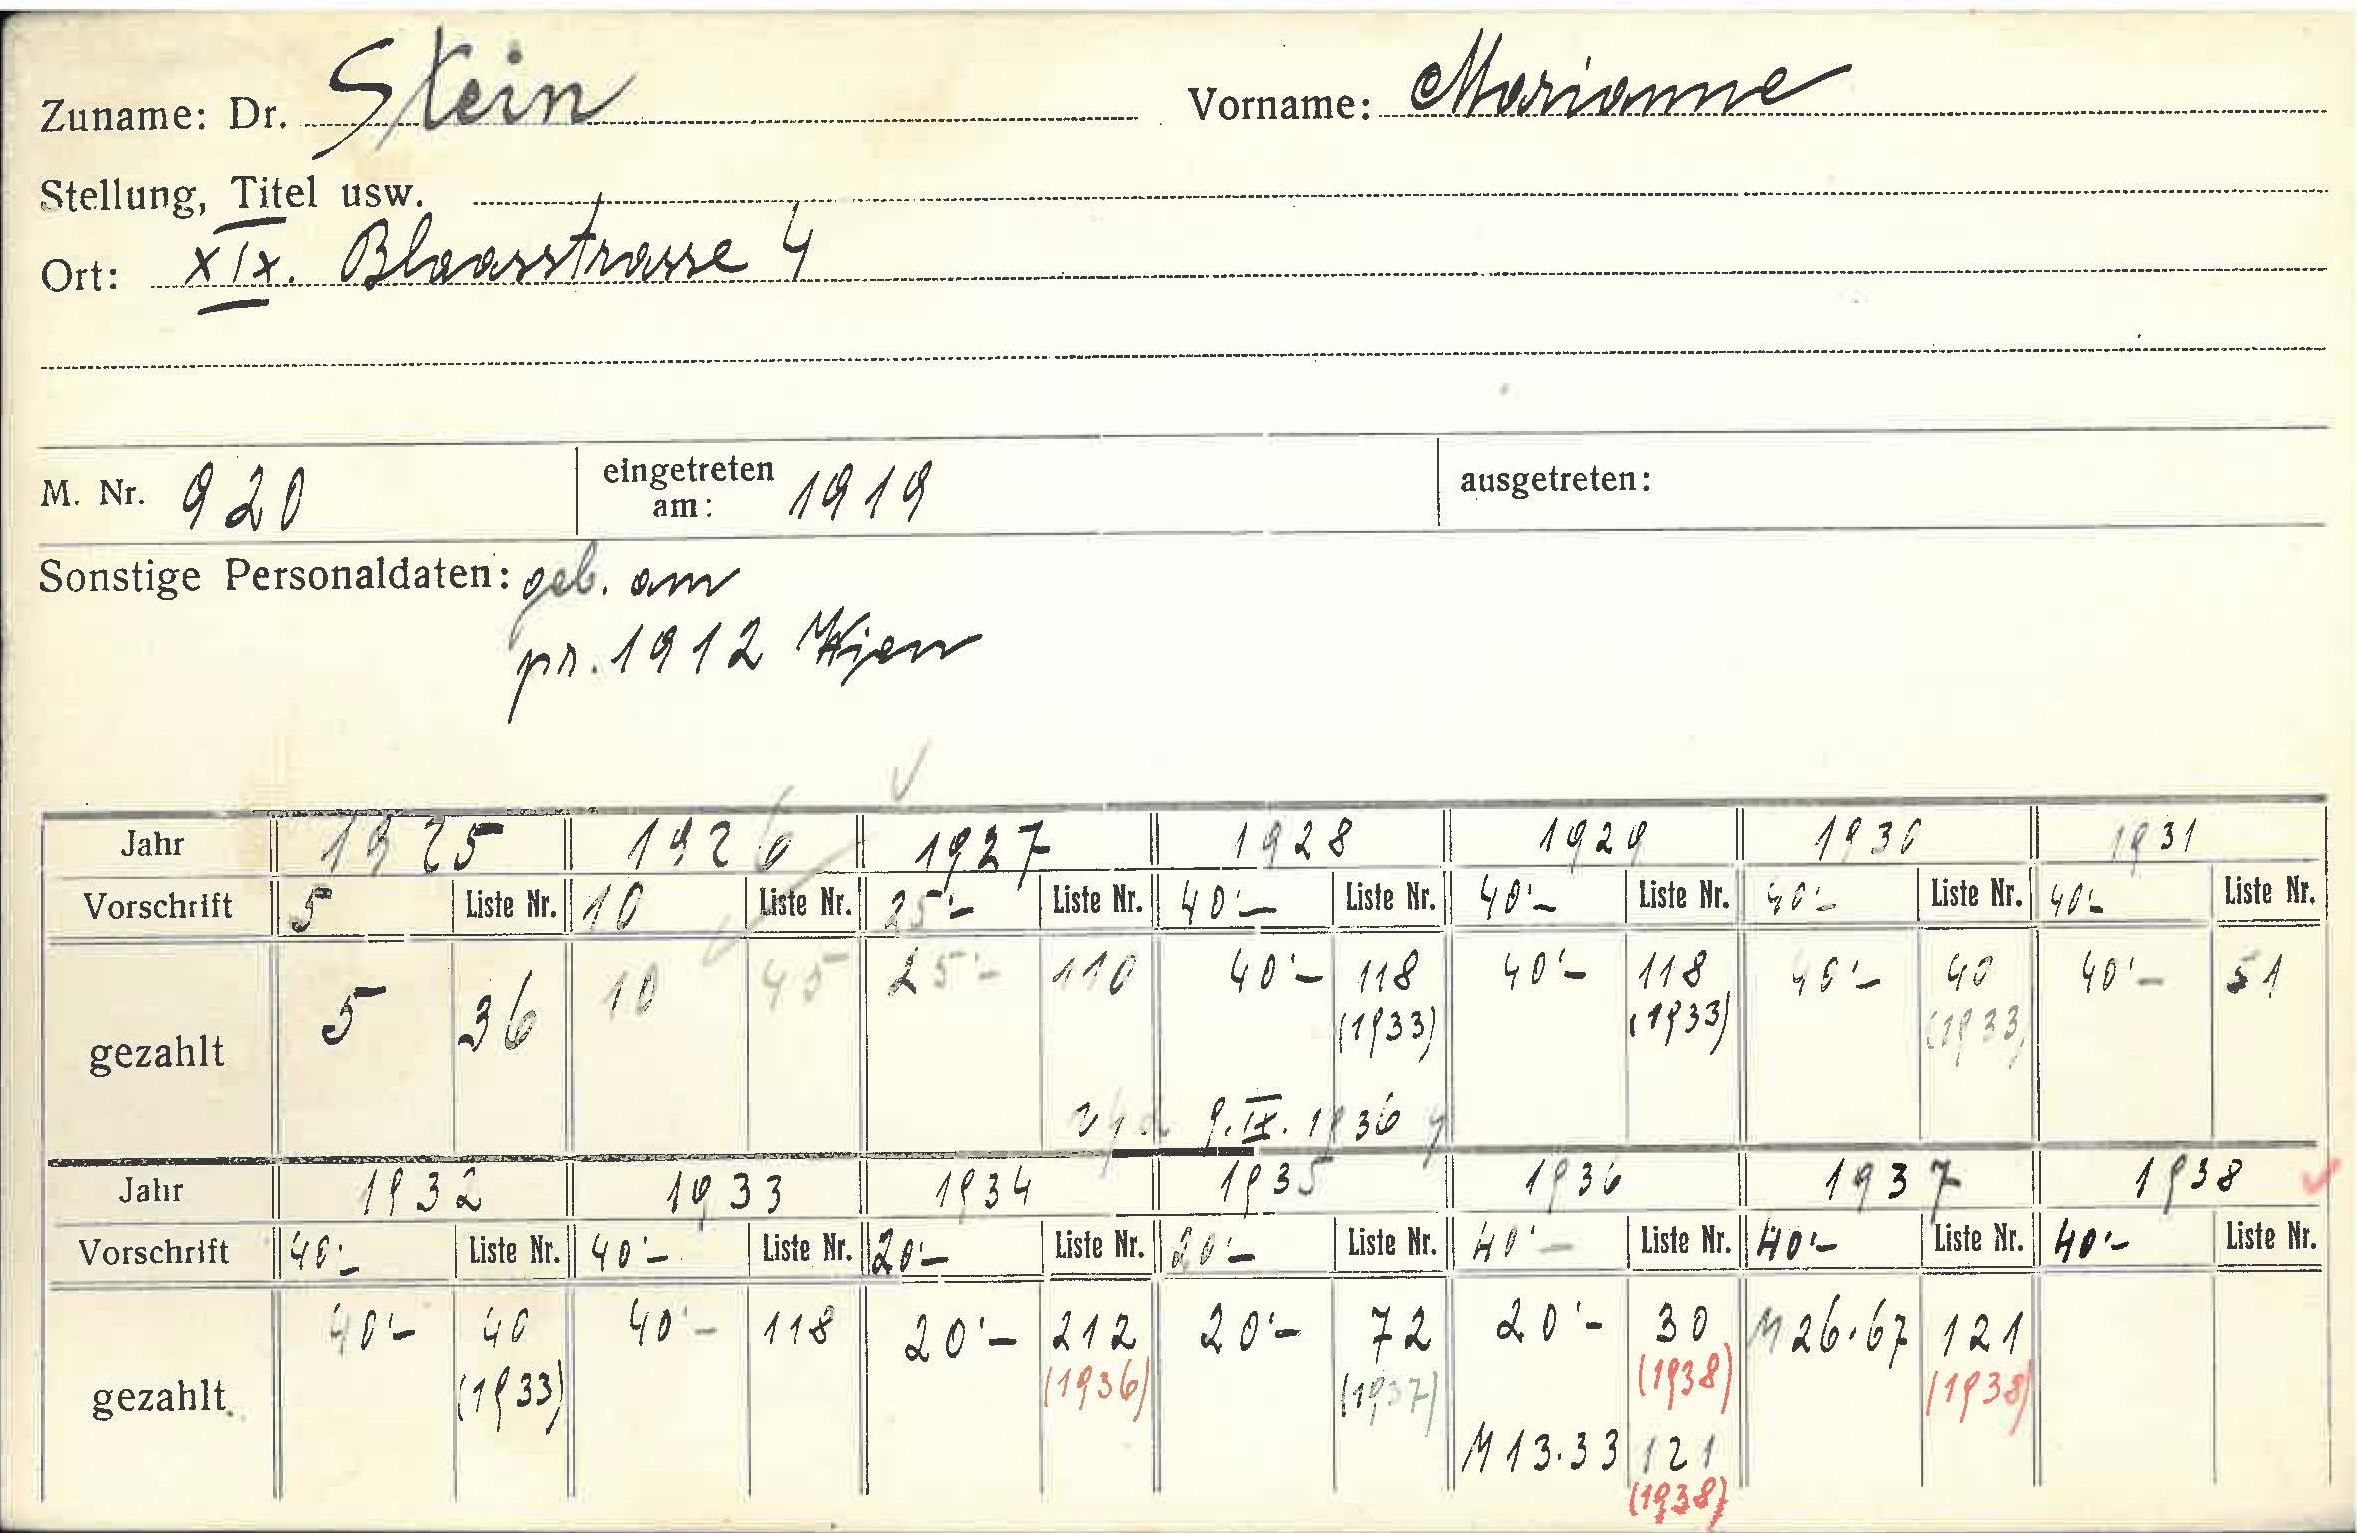 Zuname: Dr. Stein Vorname: Marianne
Stellung, Titel usw.
Ort: XIX. Blaasstrasse 4
M. Nr. 920 eingetreten am: 1919 ausgetreten:
Sonstige Personaldaten: geb. am
pr. 1912 Wien
Jahr 1925 1926 1927 1928 1929 1930 1931
Vorschrift 5 Liste Nr. 10 Liste Nr. 25'- Liste Nr. 40'- Liste Nr. 40'- Liste Nr. 40'- Liste Nr. 40'- Liste Nr.
gezahlt 5 36 10 45 25'- 110 40'- 118 40'- 118 40'- 40 40'- 51
(1933) (1933) (1933)
9. IX. 1936
Jahr 1932 1933 1934 1935 1936 1937 1938
Vorschrift 40'- Liste Nr. 40'- Liste Nr. 20'- Liste Nr. 20'- Liste Nr. 40'- Liste Nr. 40'- Liste Nr. 40'- Liste Nr.
gezahlt 40'- 40 40'- 118 20'- 212 20'- 72 20'- 30 M 26.67 121
(1933) (1936) (1937) (1938) (1938)
M 13.33 121
(1938)